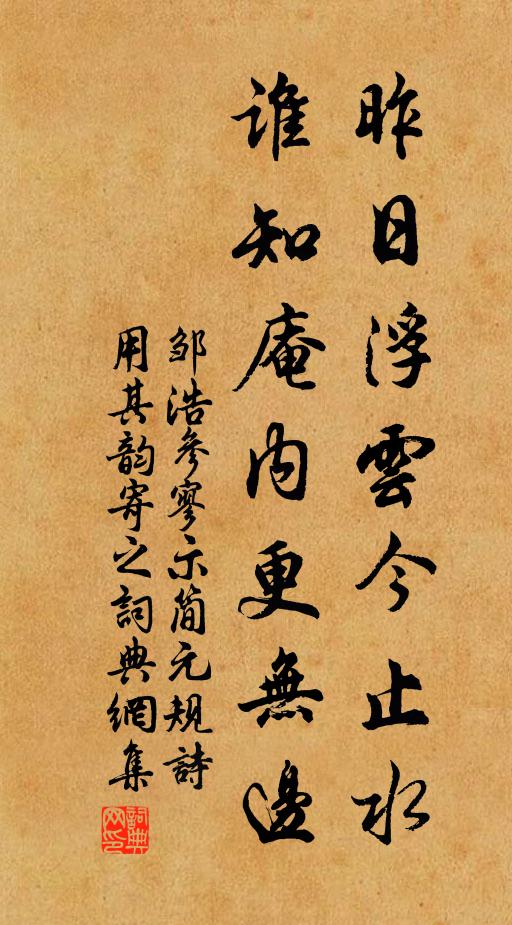 昨日浮雲今止水
誰知庵内更無邊
邹浩參寥示簡元規詩
用其韵寄之詞典網集
詞典网印